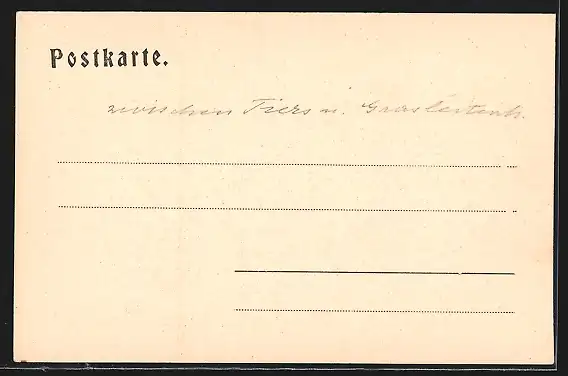 Postkarte.
zwischen Tiers u. Grasleitenh.